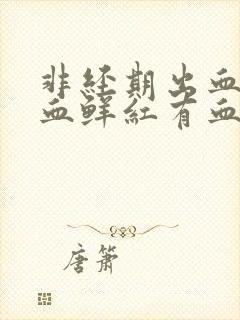 非经期出血
血鲜红有血
唐箫